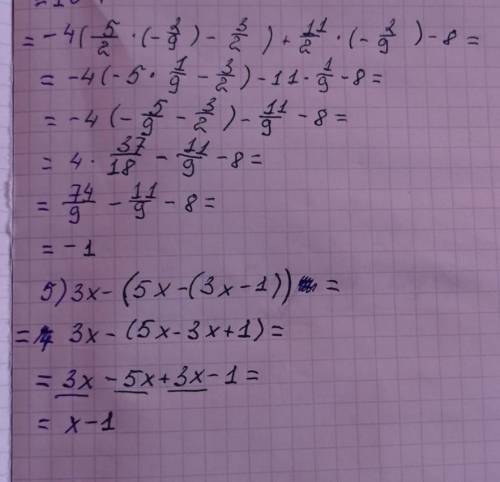 = -4(5/2 · (-2/9) - 3/2) + 11/2 · (-2/9) - 8 =
= -4(-5 · 1/9 - 3/2) - 11 · 1/9 - 8 =
= -4(-5/9 - 3/2) - 11/9 - 8 =
= 4 · 37/18 - 11/9 - 8 =
= 74/9 - 11/9 - 8 =
= -1
5) 3x - (5x - (3x - 1)) =
= 3x - (5x - 3x + 1) =
= 3x - 5x + 3x - 1 =
= x - 1